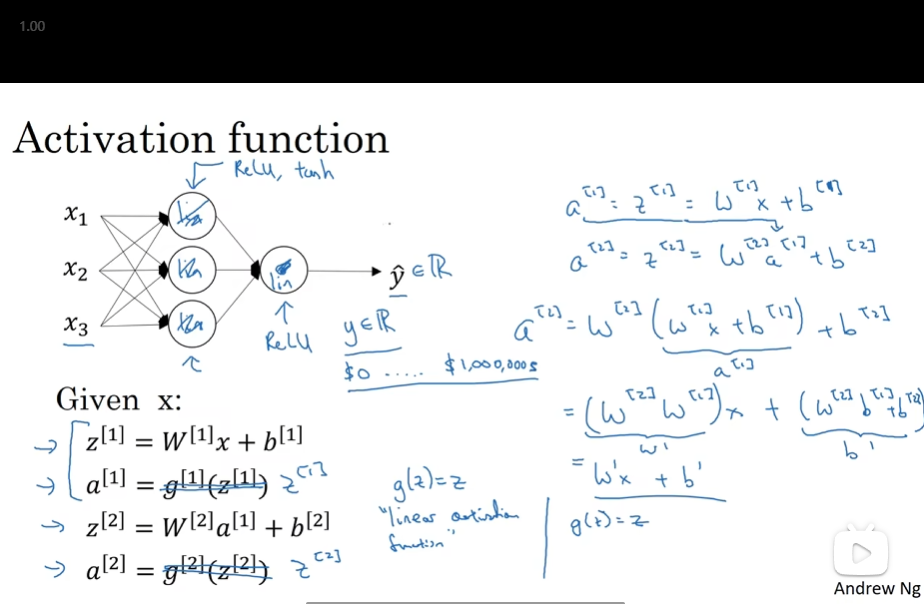 1.00
Activation function
ReLU, tanh
x₁
x₂
x₃
lin
ŷ ∈ ℝ
ReLU
y ∈ ℝ
$0 ..... $1,000,000s
Given x:
→ z^[1] = W^[1]x + b^[1]
→ a^[1] = g^[1](z^[1]) z^[1]
→ z^[2] = W^[2]a^[1] + b^[2]
→ a^[2] = g^[2](z^[2]) z^[2]
g(z) = z
"linear activation
function"
a^[1] = z^[1] = W^[1]x + b^[1]
a^[2] = z^[2] = W^[2]a^[1] + b^[2]
a^[2] = W^[2](W^[1]x + b^[1]) + b^[2]
a^[1]
= (W^[2]W^[1])x + (W^[2]b^[1] + b^[2])
W' b'
= W'x + b'
g(z) = z
Andrew Ng